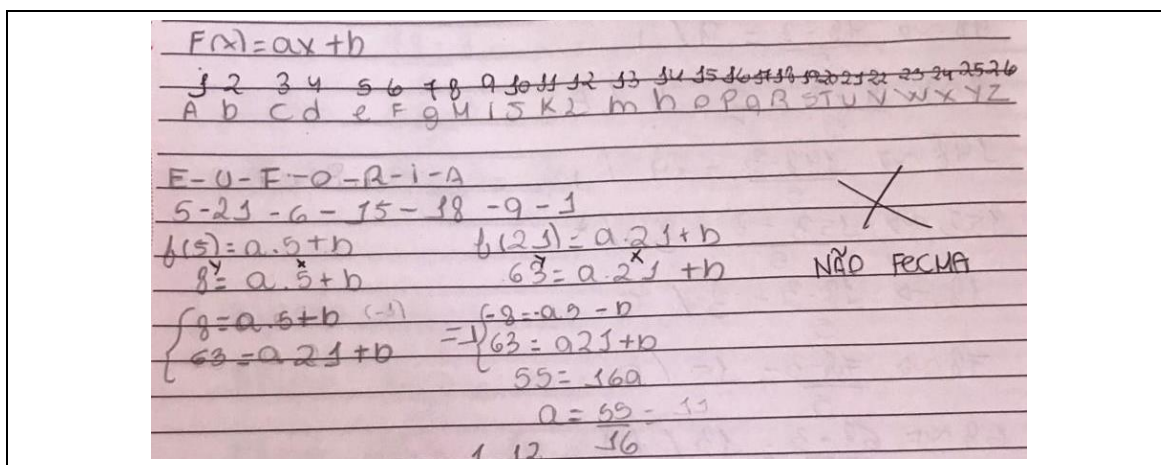 F(x)=ax+b
1 2 3 4 5 6 7 8 9 10 11 12 13 14 15 16 17 18 19 20 21 22 23 24 25 26
A b C d e F g H i J K L m n o P q R S T U V W X Y Z
E-U-F-O-R-i-A
5-21-6-15-18-9-1
f(5)=a.5+b f(21)=a.21+b
y x y x
8=a.5+b 63=a.21+b NÃO FECHA
{8=a.5+b (-1) = {-8=-a5-b
{63=a21+b {63=a21+b
55=16a
a=55
16